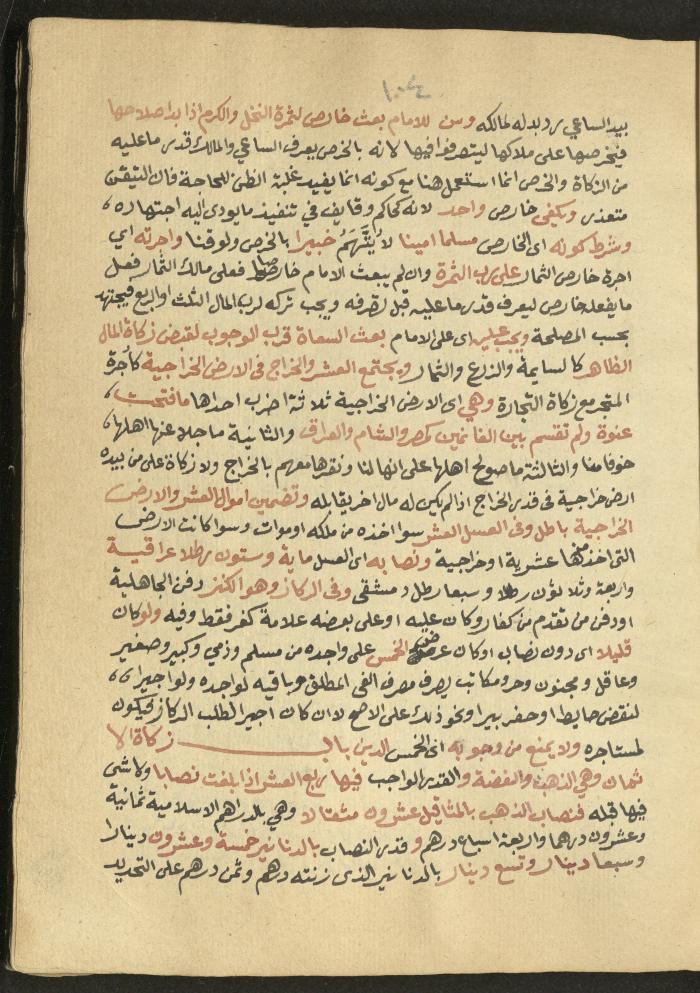 بيد الساعي رد بدله لمالكه وسن للامام بعث خارص لثمرة النخل والكرم اذا بدا صلاحها
فيخرصها على ملاكها ليتصرفوا فيها لانه بالخرص يعرف الساعي والمالك قدر ما عليه
من الزكاة والخرص انما استعمل هنا مع كونه انما يفيد غلبة الظن للحاجة فان التيقن
متعذر ويكفي خارص واحد لانه كحاكم وقايف في تنفيذ ما يودي اليه اجتهاده
وشرط كونه اي الخارص مسلما امينا لا يتهم خبيرا بالخرص ولو قنا واجرته اي
اجرة خارص الثمار على رب الثمرة وان لم يبعث الامام خارصا فعلى مالك الثمار فعل
ما يفعله خارص ليعرف قدر ما عليه قبل تصرفه ويجب تركه لرب المال الثلث او الربع فيجتهد
بحسب المصلحة ويجب عليه اي على الامام بعث السعاة قرب الوجوب لقبض زكاة المال
الظاهر كالسايمة والزرع والثمار ويجتمع العشر والخراج في الارض الخراجية كاجرة
المتجر مع زكاة التجارة وهي اي الارض الخراجية ثلاثة اضرب احداها ما فتحت
عنوة ولم تقسم بين الغانمين كمصر والشام والعراق والثانية ما جلا عنها اهلها
خوفا منا والثالثة ما صولح اهلها على انها لنا ونقرها معهم بالخراج ولا زكاة على من بيده
ارض خراجية في قدر الخراج اذا لم يكن له مال اخر يقابله وتضمين اموال العشر والارض
الخراجية باطل وفي العسل العشر سوا اخذه من ملكه او موات وسوا كانت الارض
التي اخذ منها عشرية او خراجية ونصابه اي العسل ماية وستون رطلا عراقية
واربعة وثلاثون رطلا وسبعا رطل دمشقي وفي الركاز وهو الكنز دفن الجاهلية
او دفن من تقدم من كفار وكان عليه او على بعضه علامة كفر فقط وفيه ولو كان
قليلا اي دون نصاب او كان عرضا الخمس على واجده من مسلم وذمي وكبير وصغير
وعاقل ومجنون وحر ومكاتب يصرف مصرف الفي المطلق وباقيه لواجده ولو اجيرا
لنقض حايط او حفر بير او نحو ذلك على الاصح لا ان كان اجير الطلب الركاز فيكون
لمستاجره ولا يمنع من وجوبه اي الخمس الدين باب زكاة الا
ثمان وهي الذهب والفضة والقدر الواجب فيها ربع العشر اذا بلغت نصابا ولا شي
فيها قبله فنصاب الذهب بالمثاقيل عشرون مثقالا وهي بالدراهم الاسلامية ثمانية
وعشرون درهما واربعة اسباع درهم وقدر النصاب بالدنانير خمسة وعشرون دينارا
وسبعا دينار وتسع دينار بالدنانير الذي زنته درهم وثمن درهم على التحديد